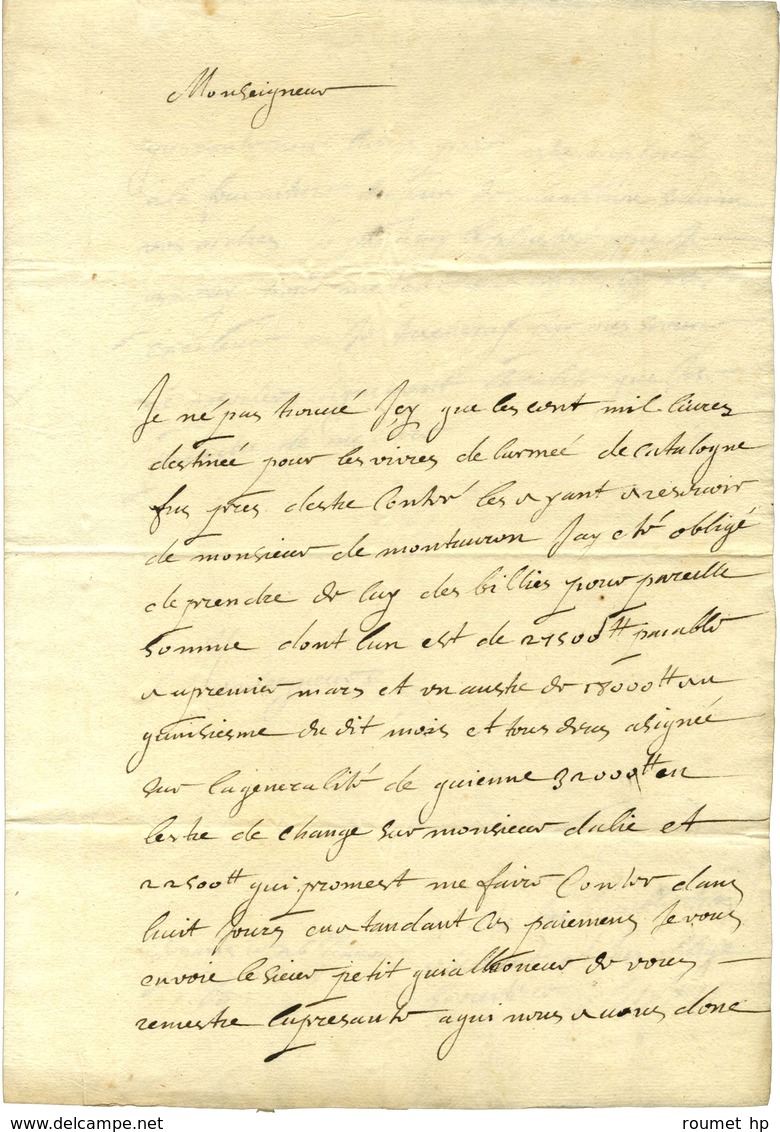 Monseigneur
Je né pas trouué Jcy que les cent mil liures
destineé pour les viures de larmeé de catalogne
fus pres destre Contéé les ayant a reseuoir
de monsieur de montauron Jay eté obligé
de prendre de luy des billies pour pareille
somme dont lun est de 27500tt paiable
au premier mars et un austre de 18000tt au
quinsiesme du dit mois et tous deus asigneé
sur la generalité de guienne 32000tt en
lestre de change sur monsieur dalie et
22500tt qui promest me faire Conter dans
huit Jours en atandant Ces paiemens Je vous
envoie le sieur petit qui a lhoneur de vous
remestre la presante a qui nous auons donc
roumet hp